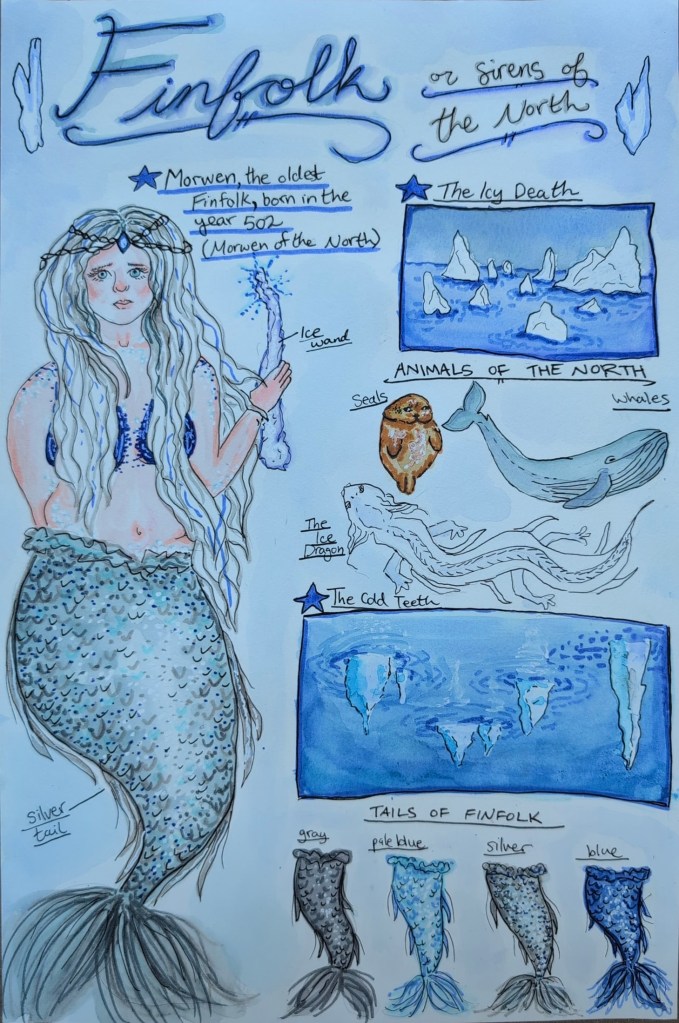 Finfolk
or Sirens of
the North
Morwen, the oldest
Finfolk, born in the
year 502
(Morwen of the North)
The Icy Death
Ice
wand
ANIMALS OF THE NORTH
Seals
Whales
The
Ice
Dragon
The Cold Teeth
silver
tail
TAILS OF FINFOLK
gray
pale blue
silver
blue